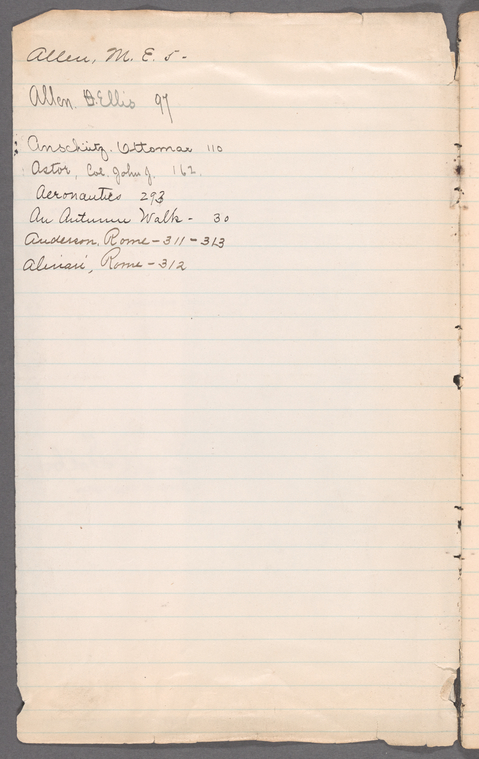 Allen, M. E. 5-
Allen. D. Ellis 97
Anschütz. Ottomar 110
Astor, Col. John J. 162.
Aeronautics 293
An Autumn Walk - 30
Anderson, Rome - 311 - 313
Alinari, Rome - 312